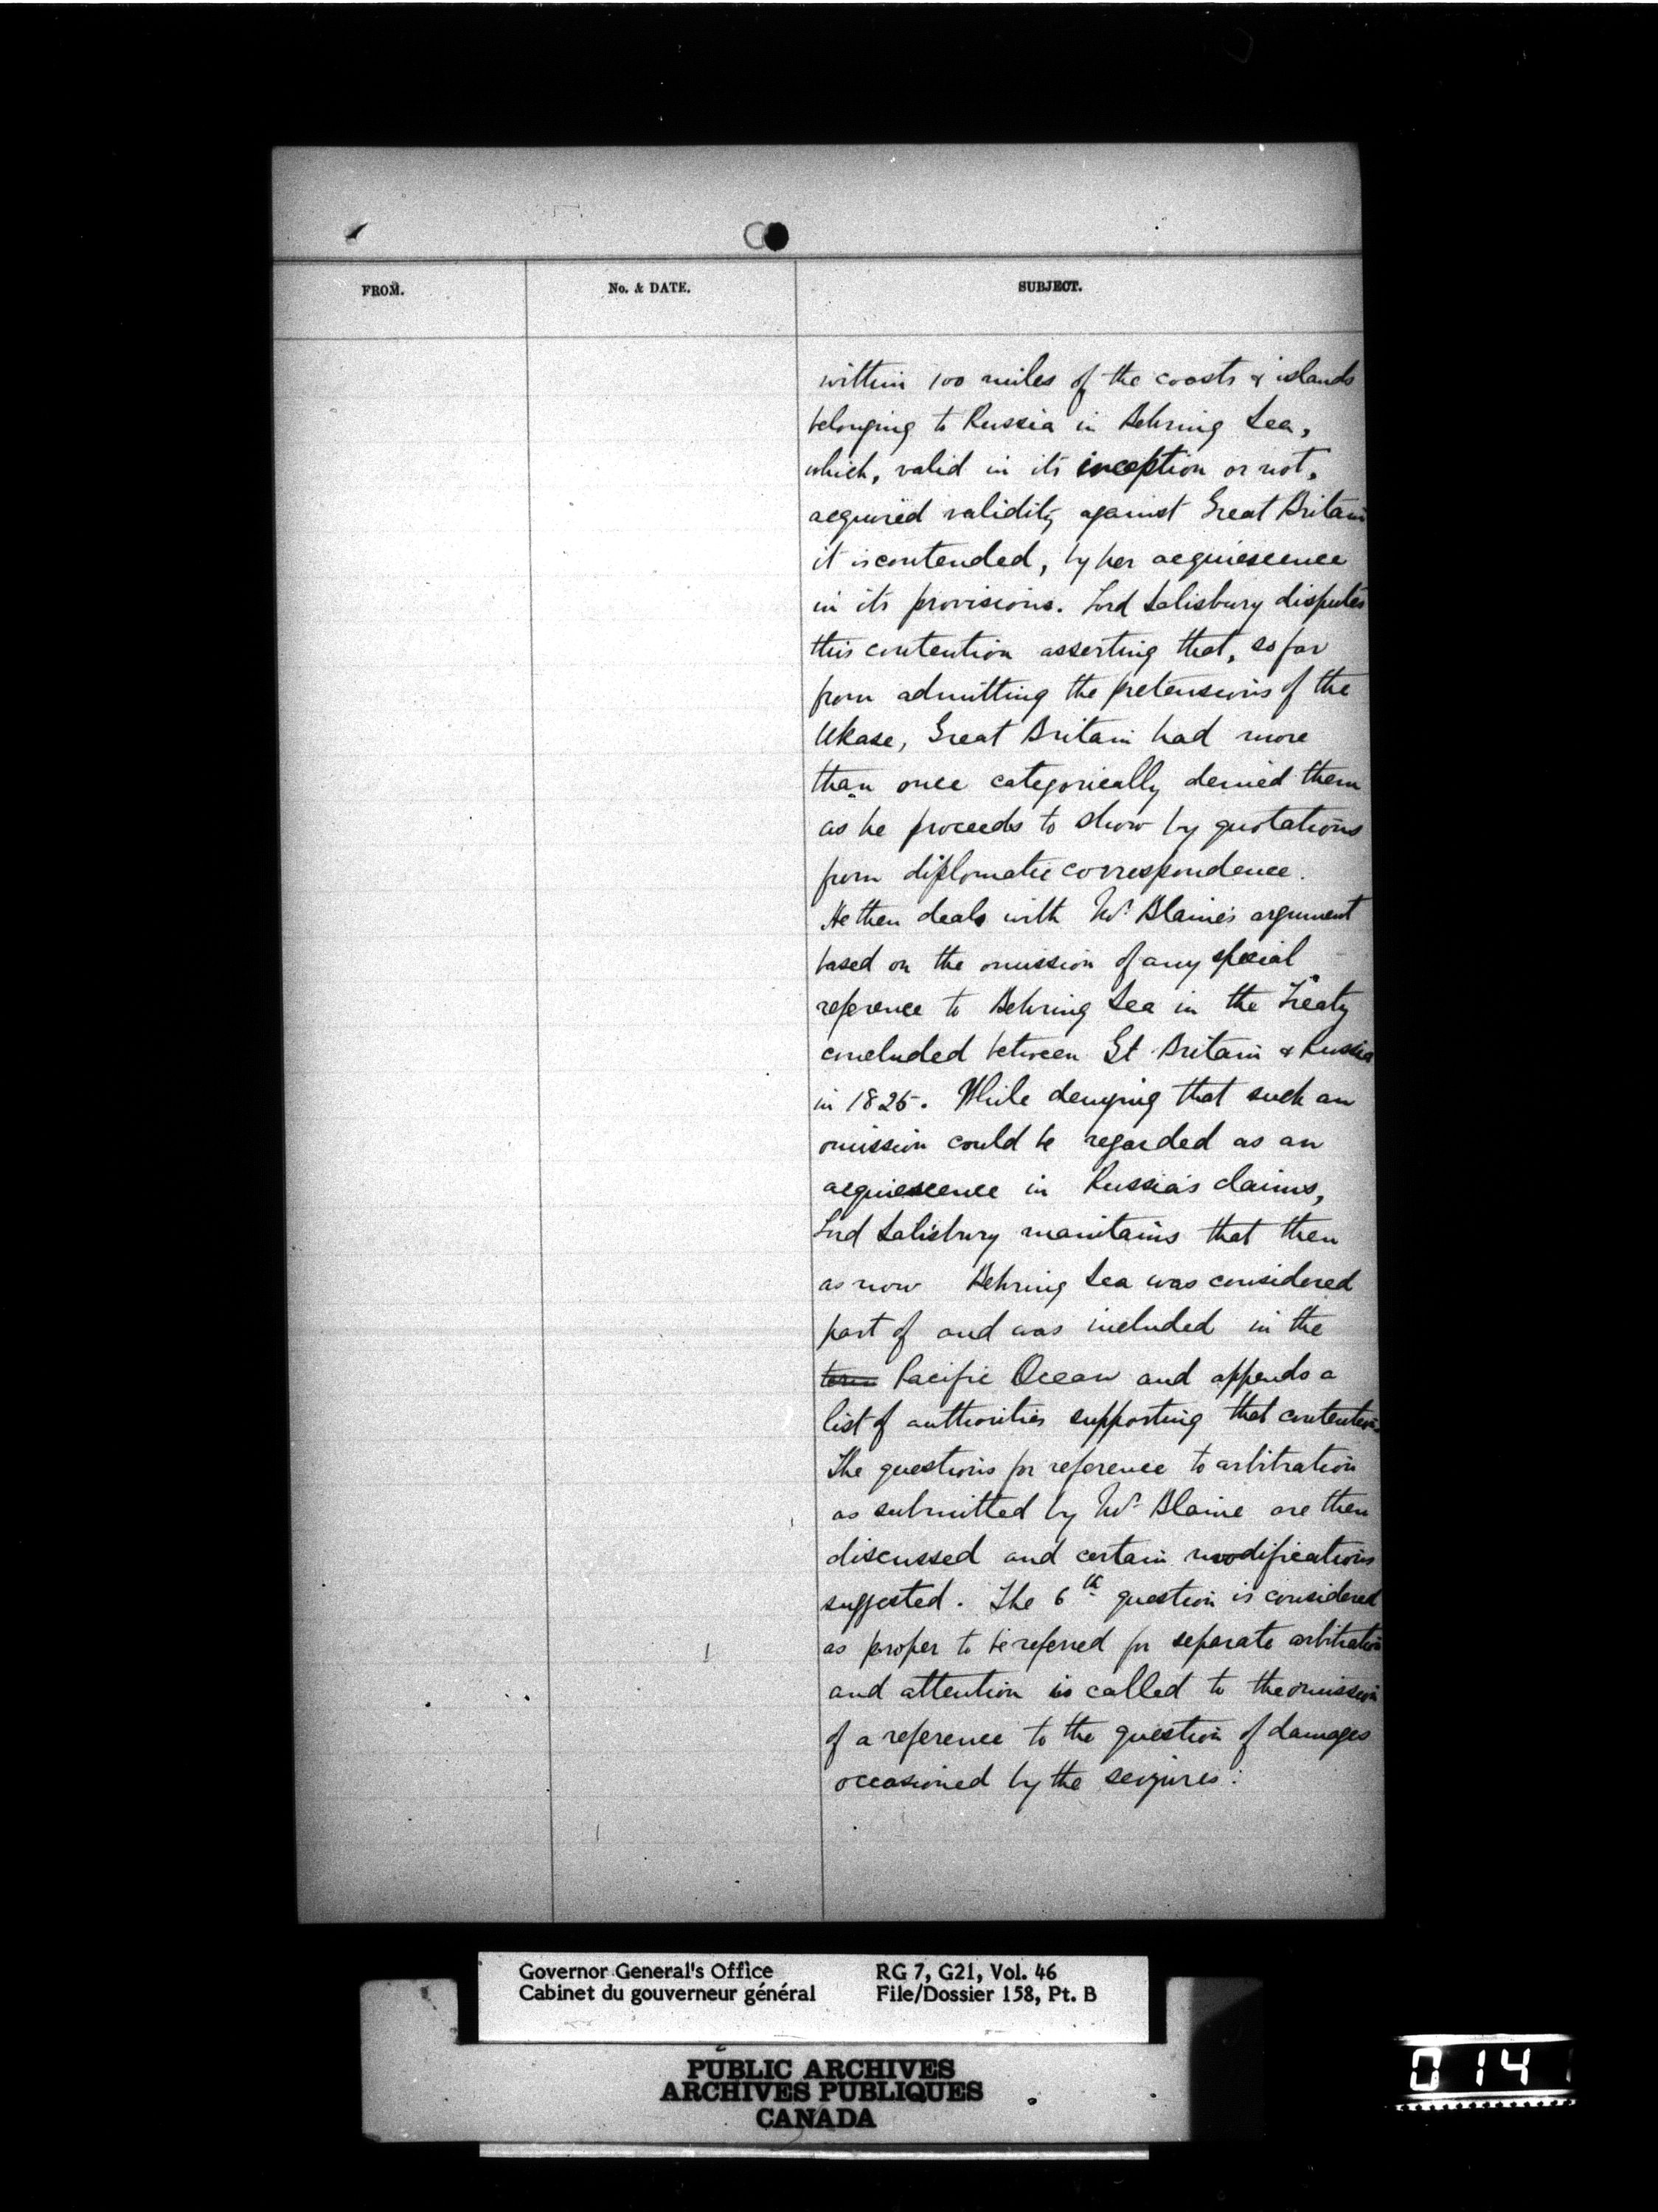 FROM.
No. & DATE.
SUBJECT.
within 100 miles of the coasts & islands
belonging to Russia in Behring Sea,
which, valid in its inception or not,
acquired validity against Great Britain
it is contended, by her acquiescence
in its provisions. Lord Salisbury disputes
this contention asserting that, so far
from admitting the pretensions of the
Ukase, Great Britain had more
than once categorically denied them
as he proceeds to show by quotations
from diplomatic correspondence.
He then deals with Mr. Blaine's argument
based on the omission of any special
reference to Behring Sea in the Treaty
concluded between Gt Britain & Russia
in 1825. While denying that such an
omission could be regarded as an
acquiescence in Russia's claims,
Lord Salisbury maintains that then
as now Behring Sea was considered
part of and was included in the
term Pacific Ocean and appends a
list of authorities supporting that contention
The questions for reference to arbitration
as submitted by Mr. Blaine are then
discussed and certain modifications
suggested. The 6th question is considered
as proper to be referred for separate arbitration
and attention is called to the omission
of a reference to the question of damages
occasioned by the seizures.
Governor General's Office
Cabinet du gouverneur général
RG 7, G21, Vol. 46
File/Dossier 158, Pt. B
PUBLIC ARCHIVES
ARCHIVES PUBLIQUES
CANADA
014